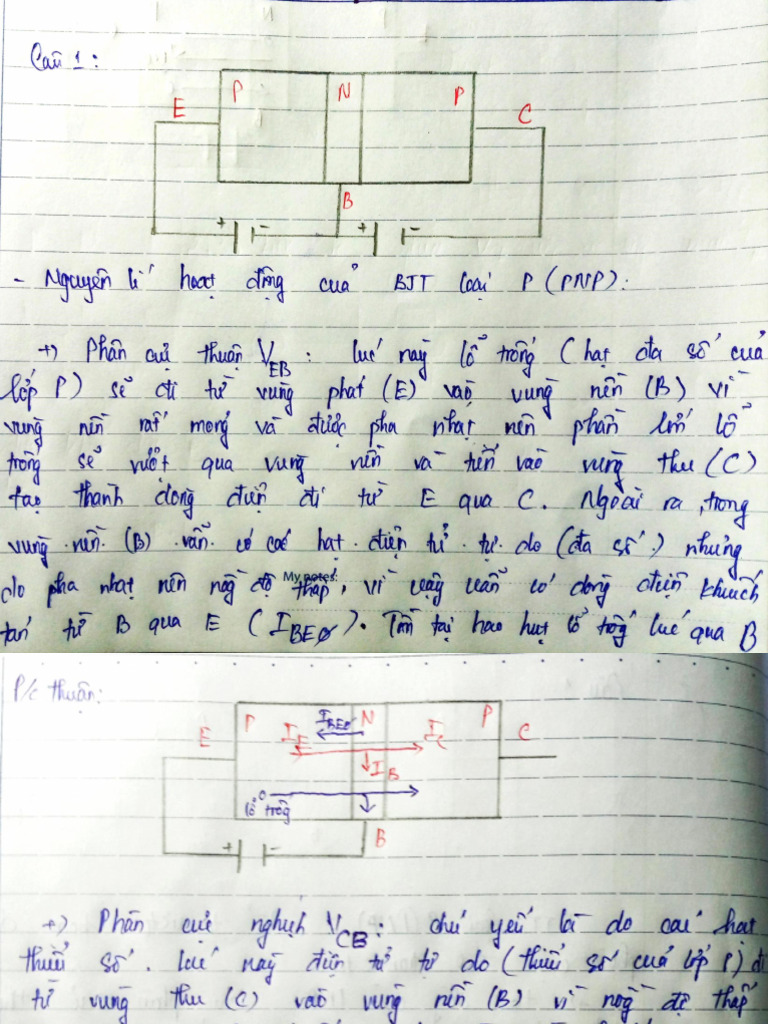 Câu 1:
P N P
E C
B
+ - + -
- Nguyên lí hoạt động của BJT loại P (PNP):
+) Phân cực thuận VEB : lúc này lỗ trống (hạt đa số của
lớp P) sẽ đi từ vùng phát (E) vào vùng nền (B) vì
vùng nền rất mỏng và được pha nhạt nên phần lớn lỗ
trống sẽ vượt qua vùng nền và tiến vào vùng thu (C)
tạo thành dòng điện đi từ E qua C. Ngoài ra, trong
vùng nền (B) vẫn có các hạt điện tử tự do (đa số) nhưng
do pha nhạt nên nồng độ thấp, vì vậy vẫn có dòng điện khuếch
My notes:
tán từ B qua E (IBEØ). Tồn tại hao hụt lỗ trống lúc qua B
P/c thuận:
P IBEØ N P
E IE IC C
IB
lỗ trống
B
+ -
+) Phân cực nghịch VCB: chủ yếu là do các hạt
thiểu số. Lúc này điện tử tự do (thiểu số của lớp P) đi
từ vùng thu (C) vào vùng nền (B) vì nồng độ thấp